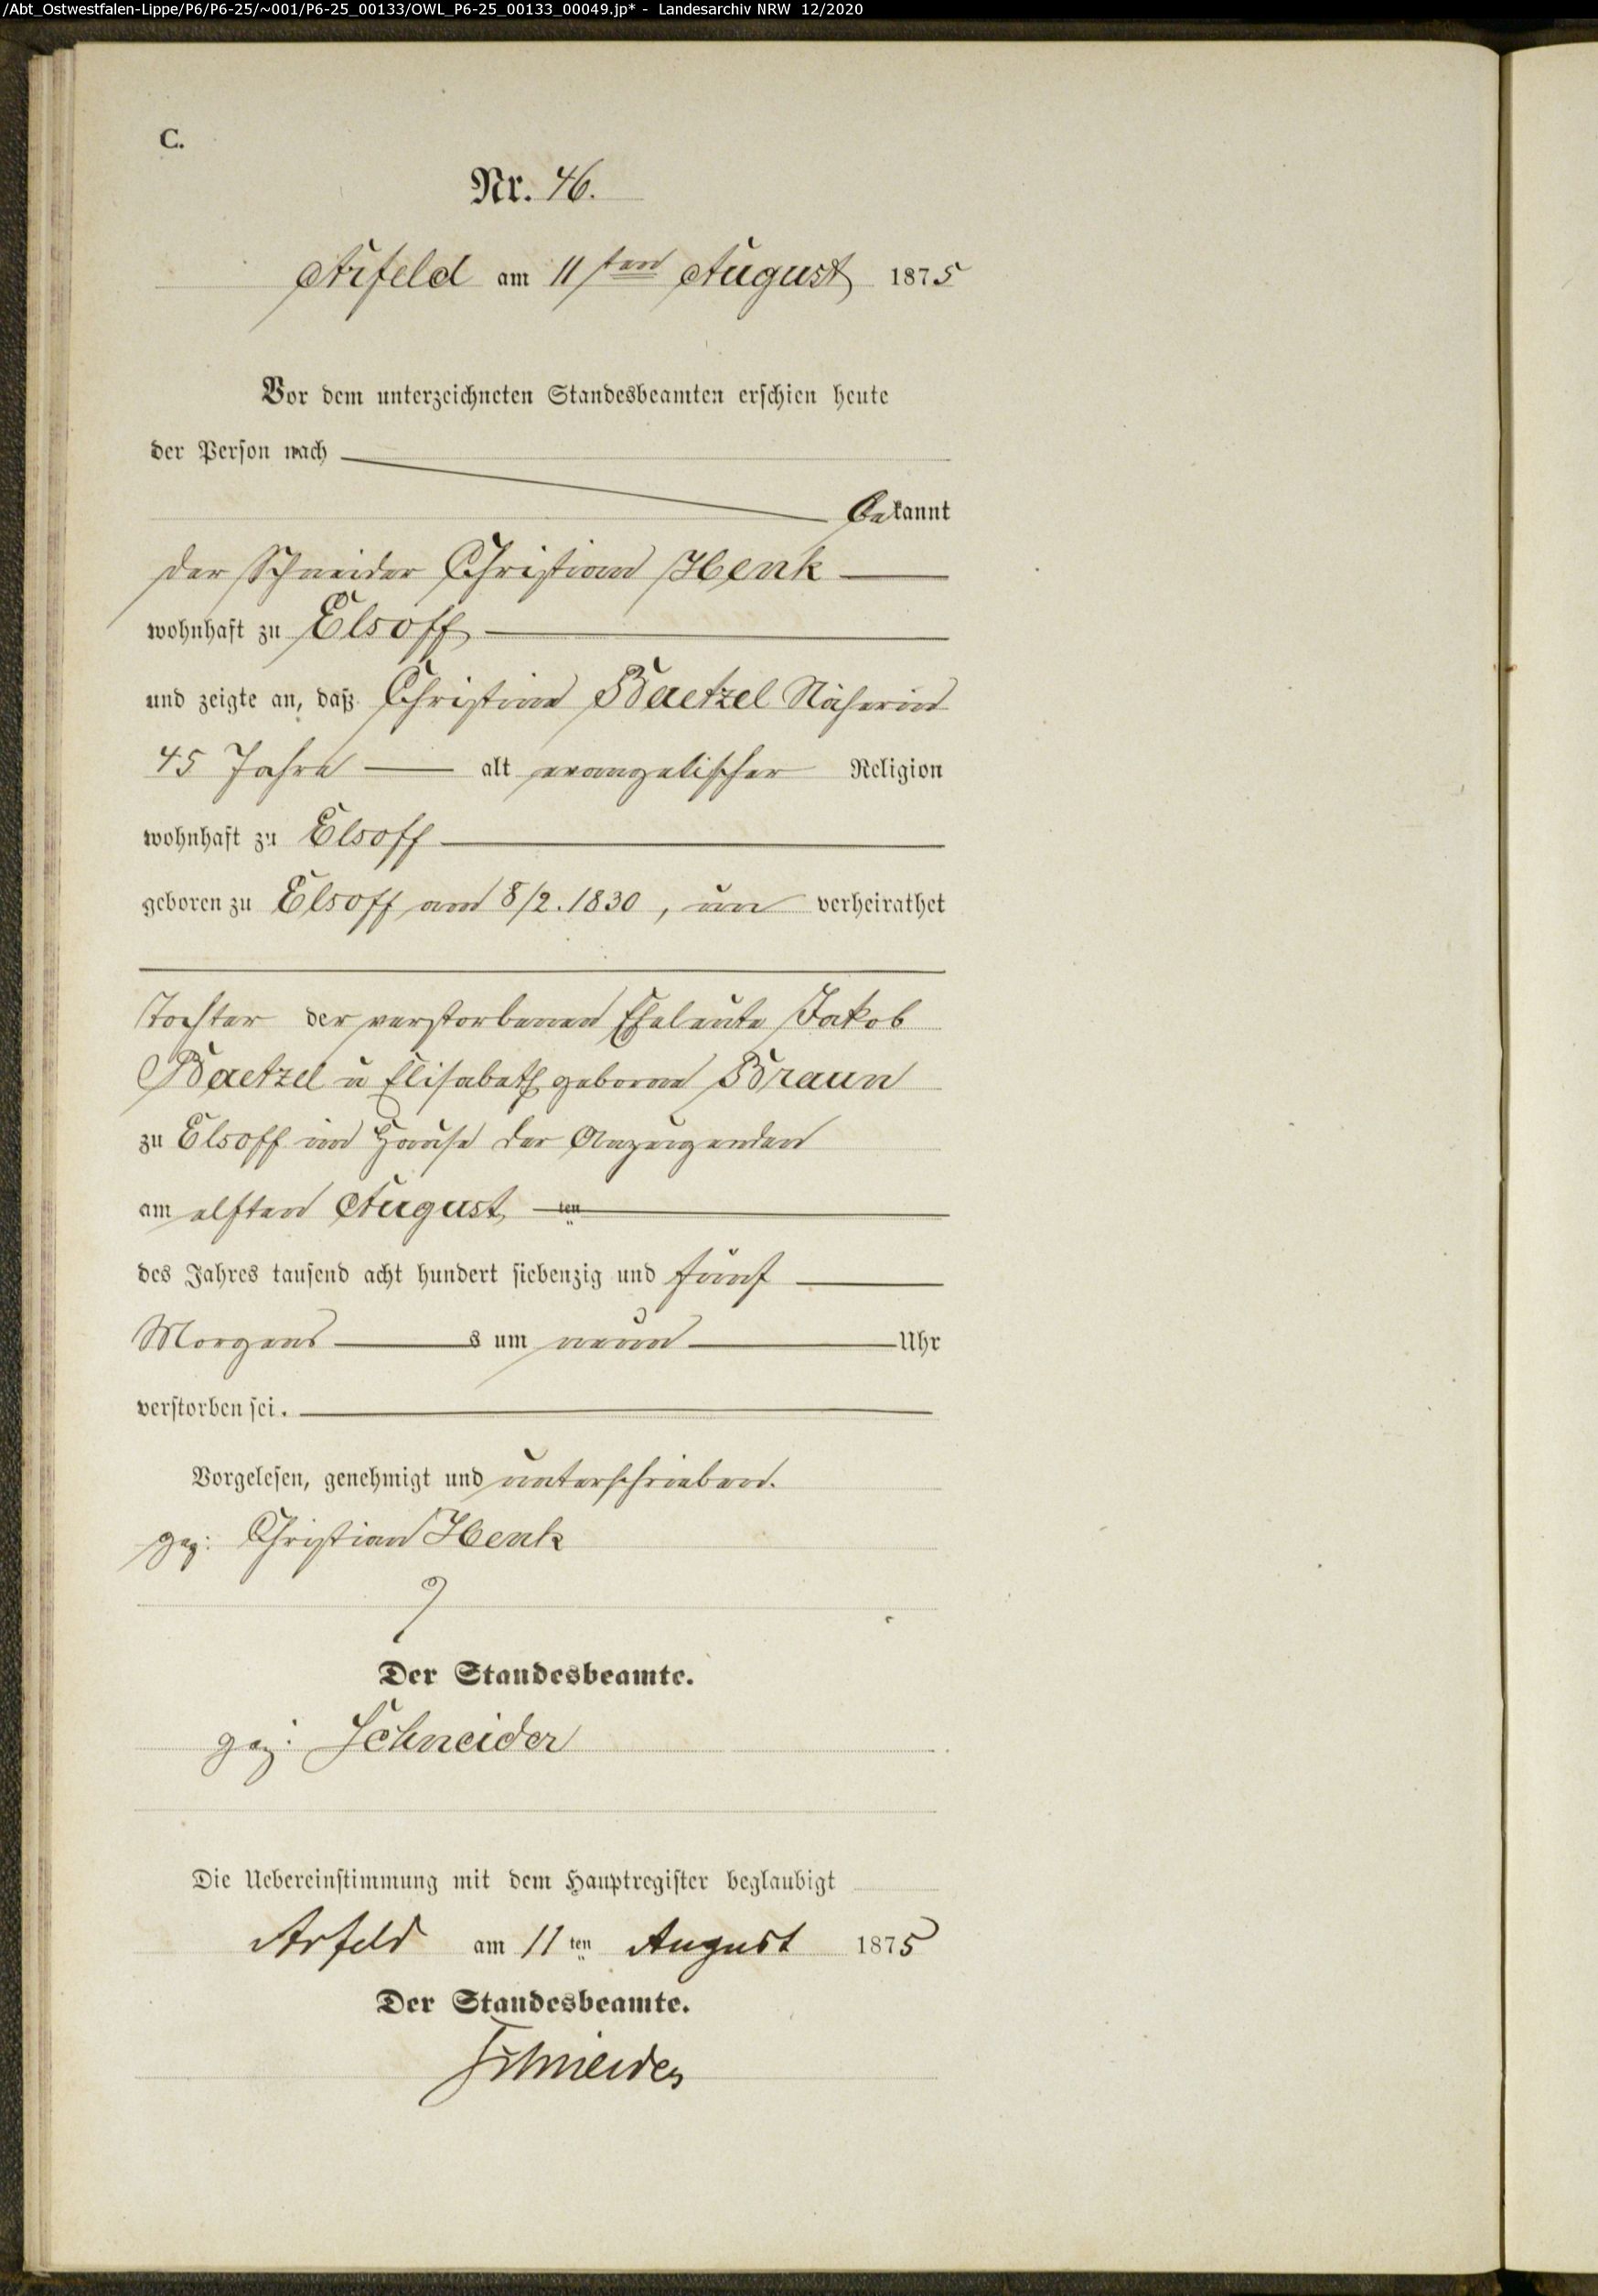 /Abt_Ostwestfalen-Lippe/P6/P6-25/~001/P6-25_00133/OWL_P6-25_00133_00049.jp* - Landesarchiv NRW 12/2020
C.
Nr. 46.
Arfeld am 11ten August 1875
Vor dem unterzeichneten Standesbeamten erschien heute
der Person nach
bekannt
der Schneider Christian Henk
wohnhaft zu Elsoff
und zeigte an, daß Christine Baetzel Näherin
45 Jahre alt evangelischer Religion
wohnhaft zu Elsoff
geboren zu Elsoff am 8/2. 1830, un verheirathet
Tochter der verstorbenen Eheleute Jakob
Baetzel u Elisabeth geborne Braun
zu Elsoff im Hause der Anzeigenden
am elften August ten
des Jahres tausend acht hundert siebenzig und fünf
Morgens s um neun Uhr
verstorben sei.
Vorgelesen, genehmigt und unterschrieben.
gez: Christian Henk
Der Standesbeamte.
gez: Schneider
Die Uebereinstimmung mit dem Hauptregister beglaubigt
Arfeld am 11ten August 1875
Der Standesbeamte.
Schneider